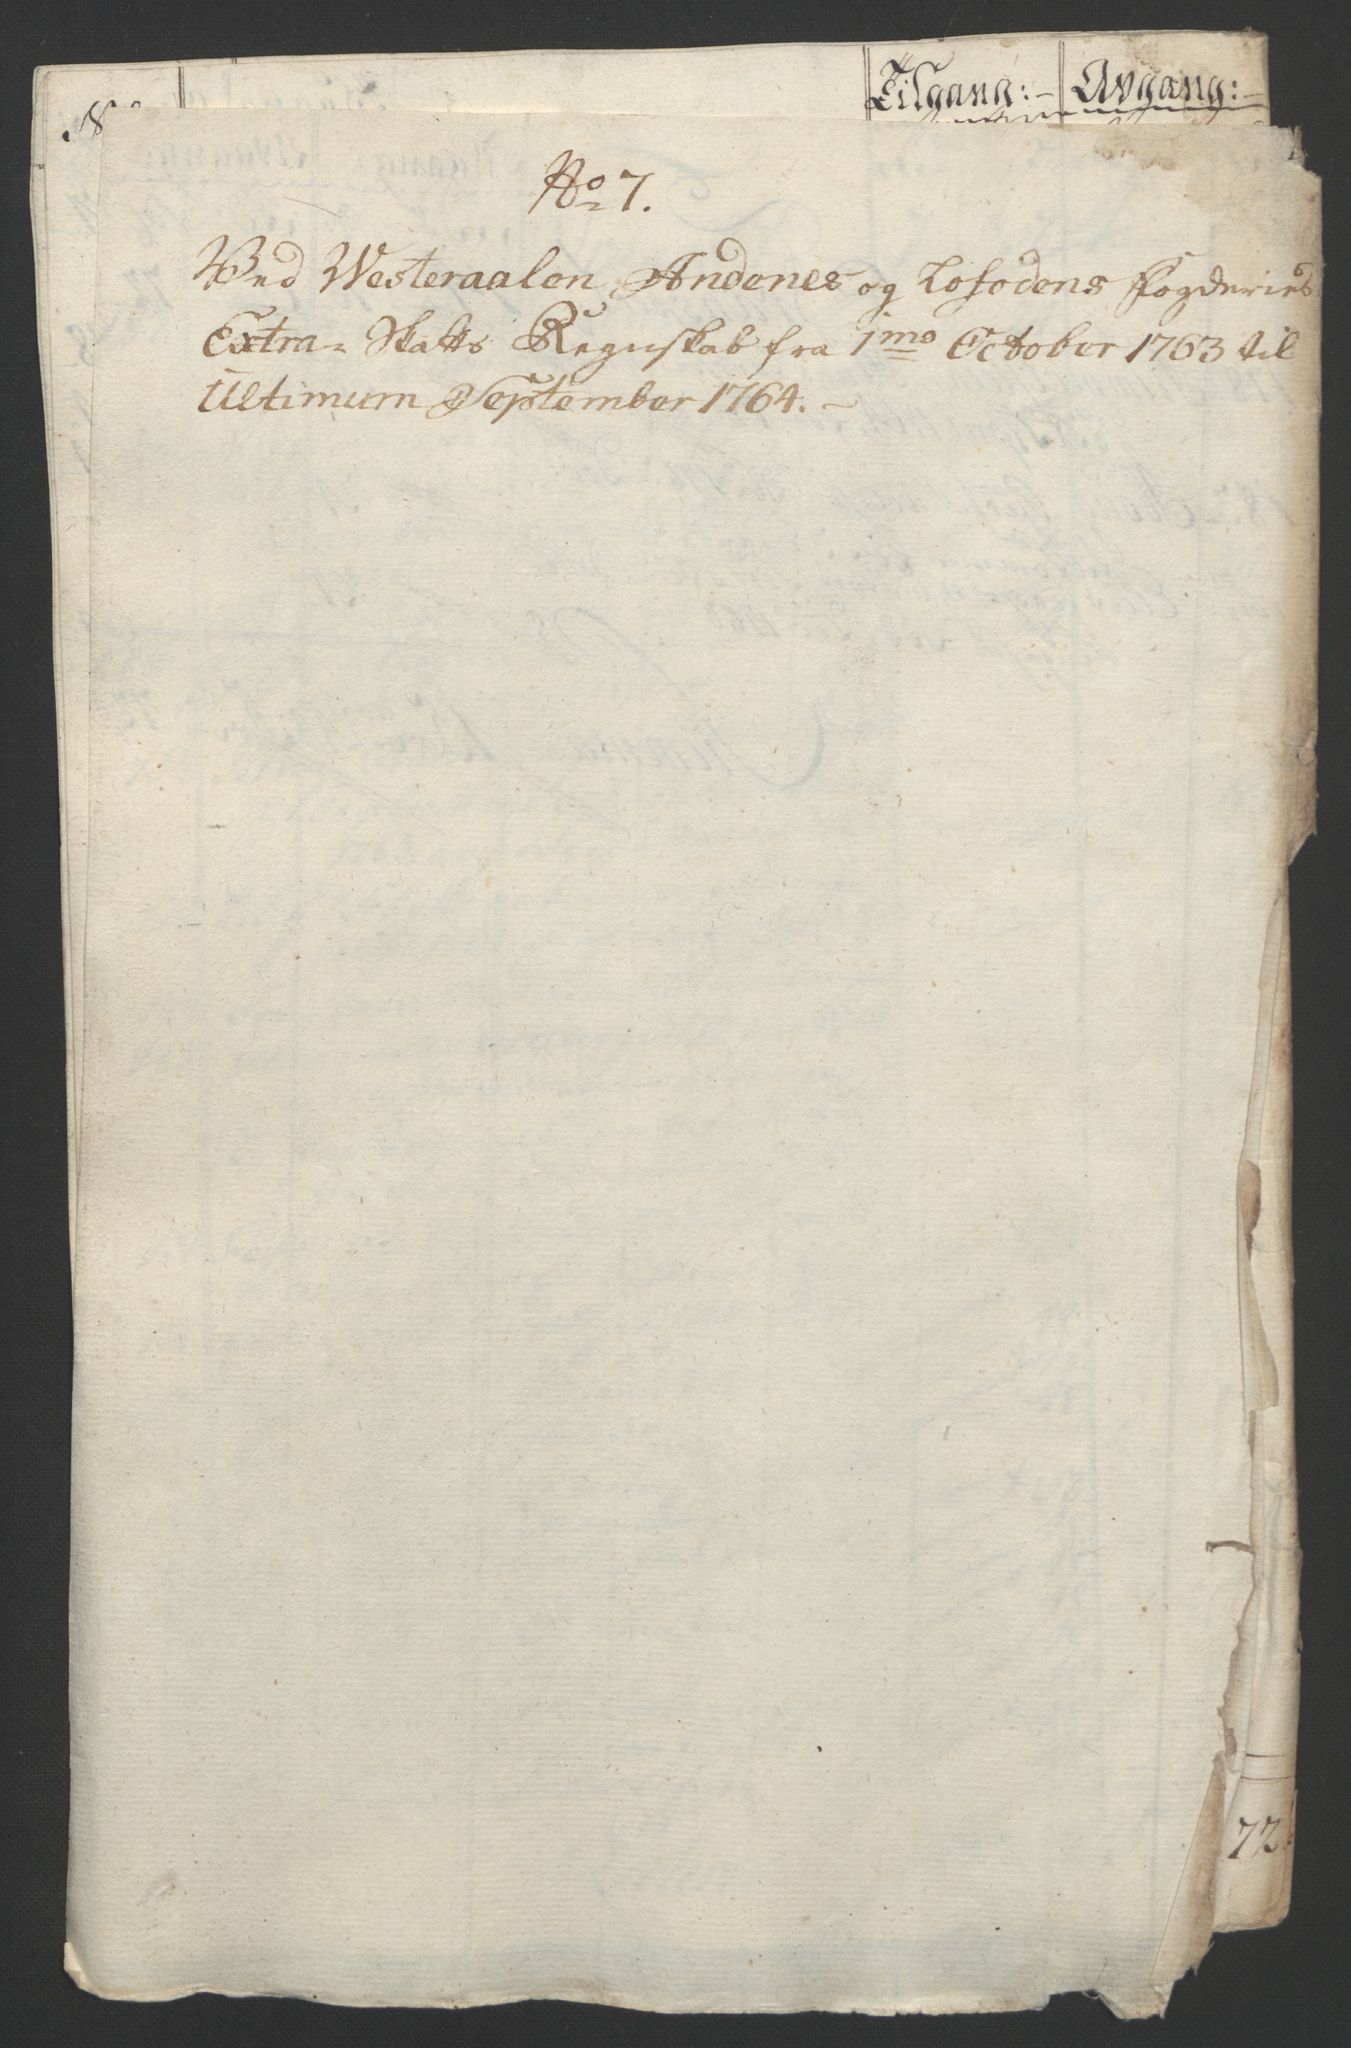 Tilgang:- Avgang:-
No 7.
Ved Westeraalen, Andenes og Lofodens Fogderies
Extra- Skatts Regnskab fra 1mo October 1763 til
Ultimum September 1764. -
72